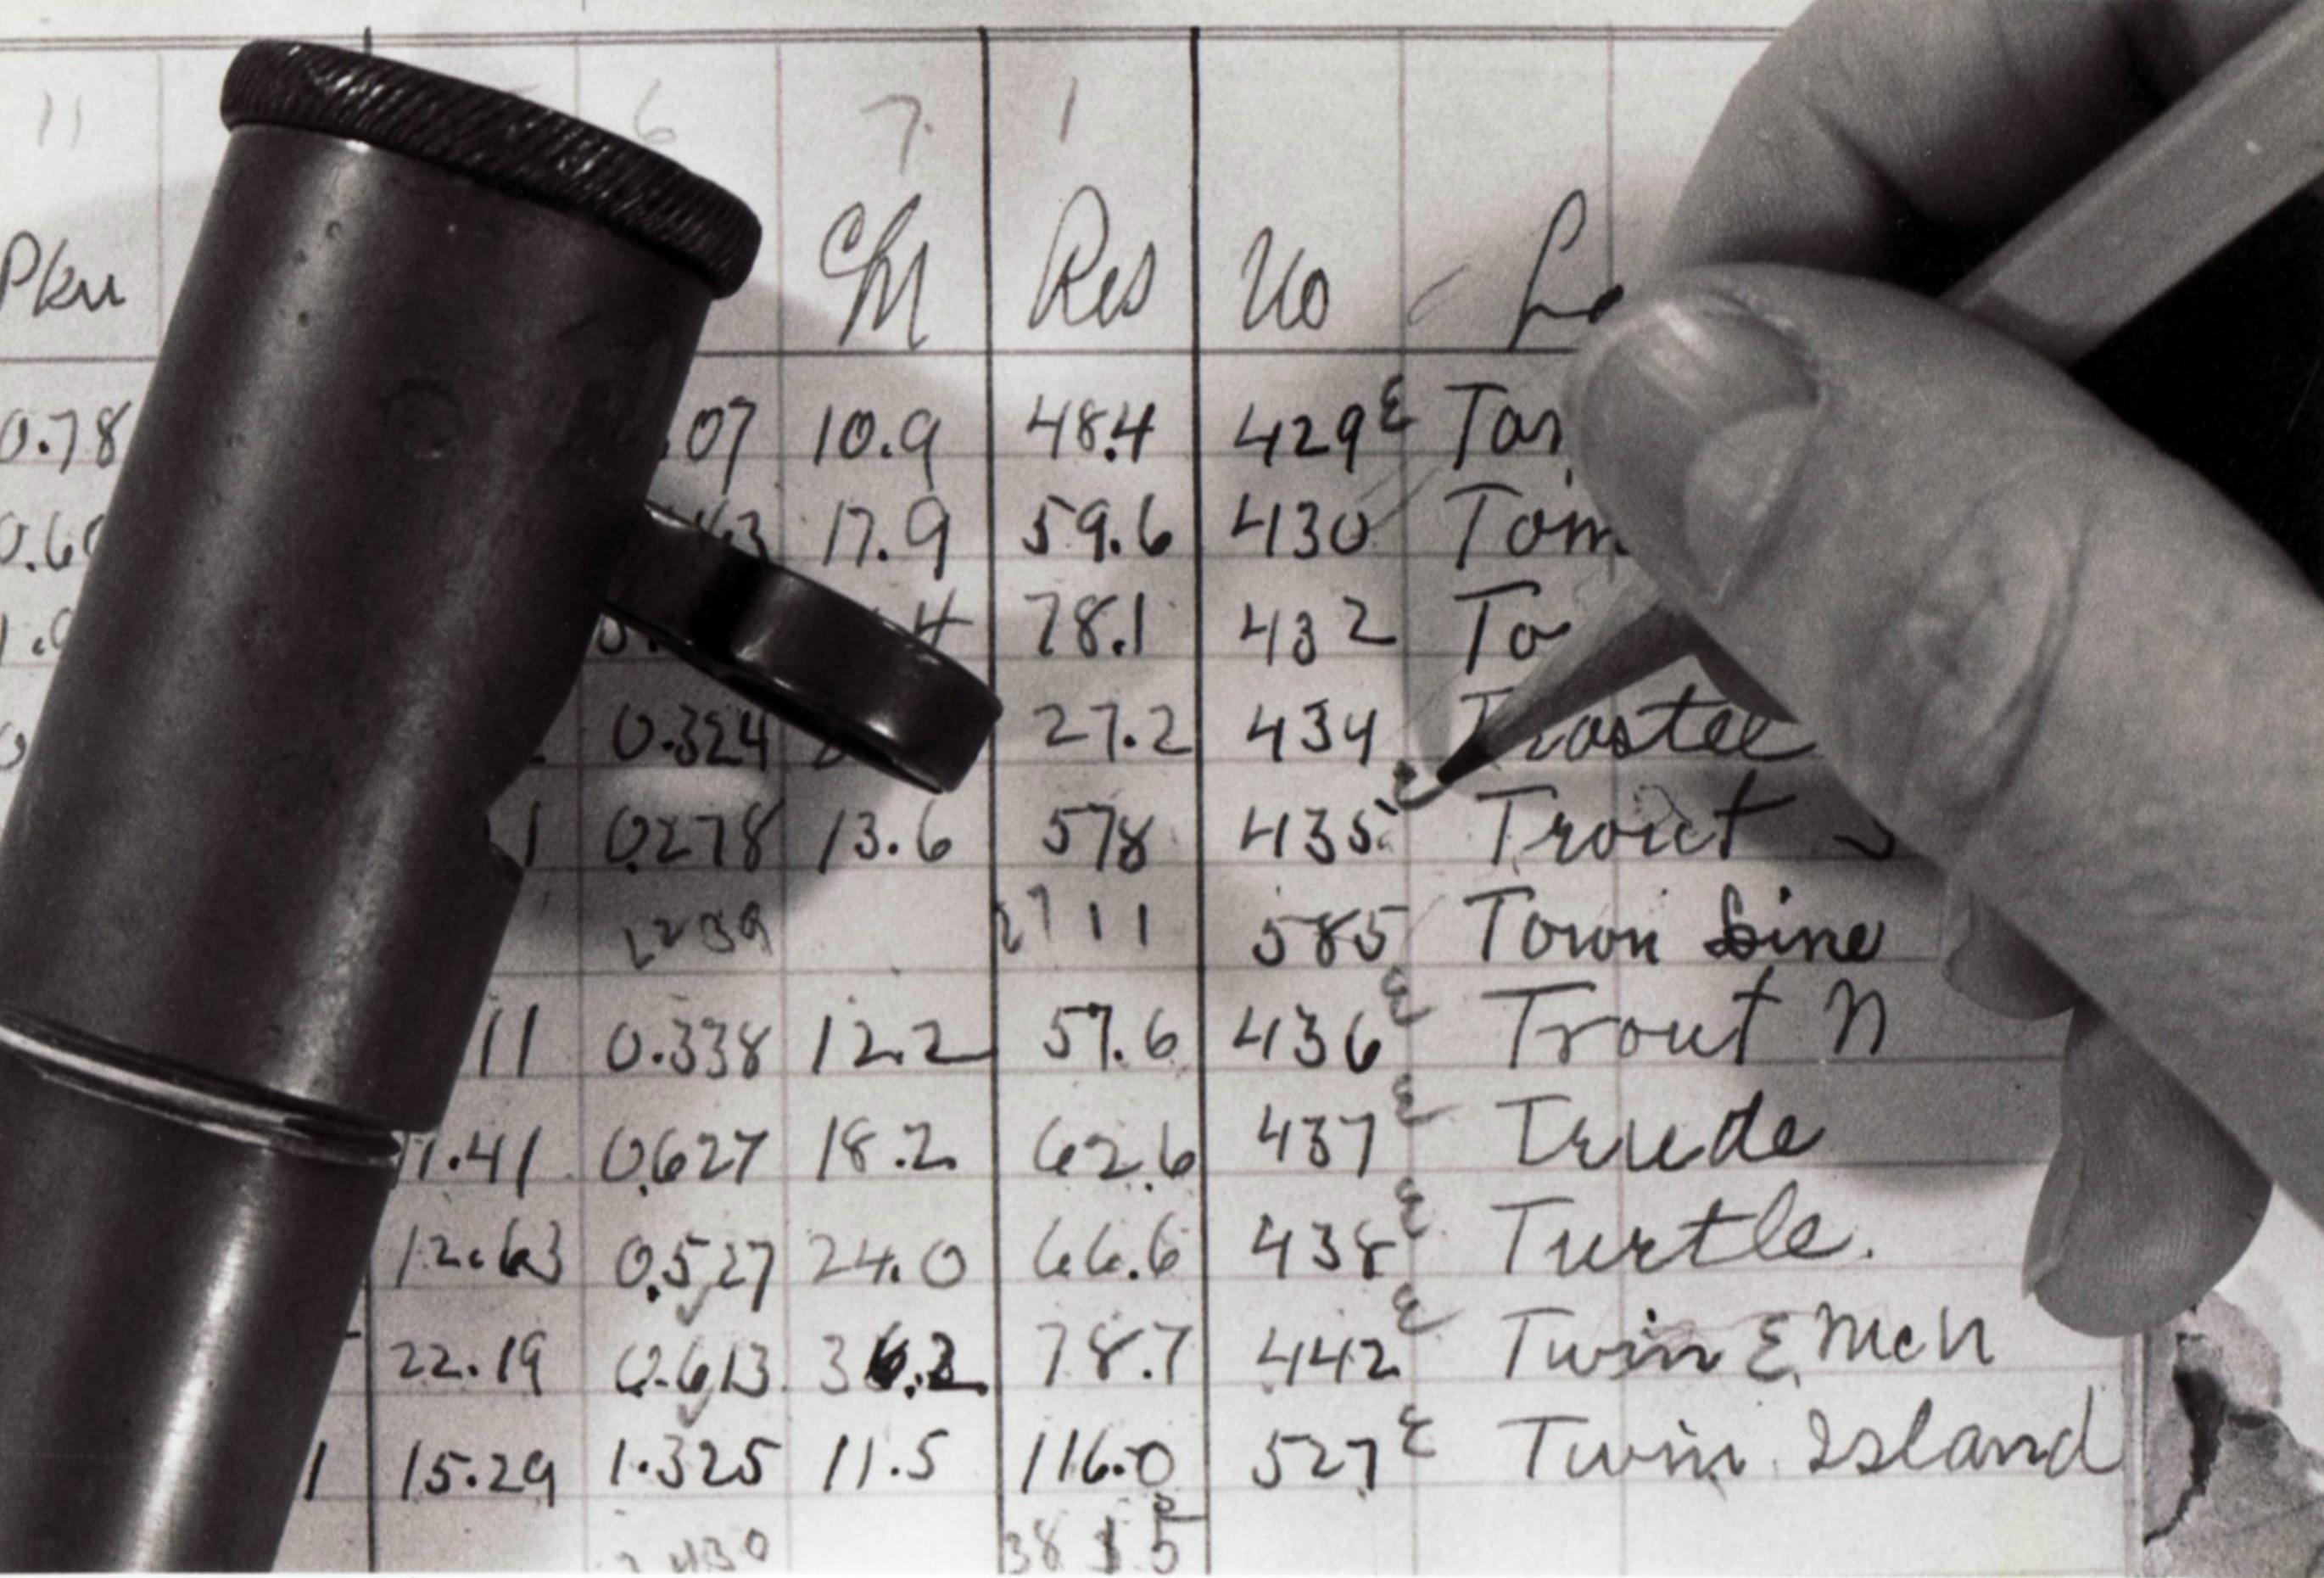 11 6 7. 1
Pku Chl Res No
0.78 07 10.9 48.4 429 E
17.9 59.6 430 Tom
78.1 432 To
0.324 27.2 434 Trostel
1 0.278 13.6 578 435 Trout S
11 585 Town Line
11 0.338 12.2 57.6 436 Trout N
1.41 0.627 18.2 62.6 437 Trude
12.63 0.527 24.0 66.6 438 Turtle.
22.19 0.613 78.7 442 Twin E McN
1 15.29 1.325 11.5 116.0 527 E Twin Island